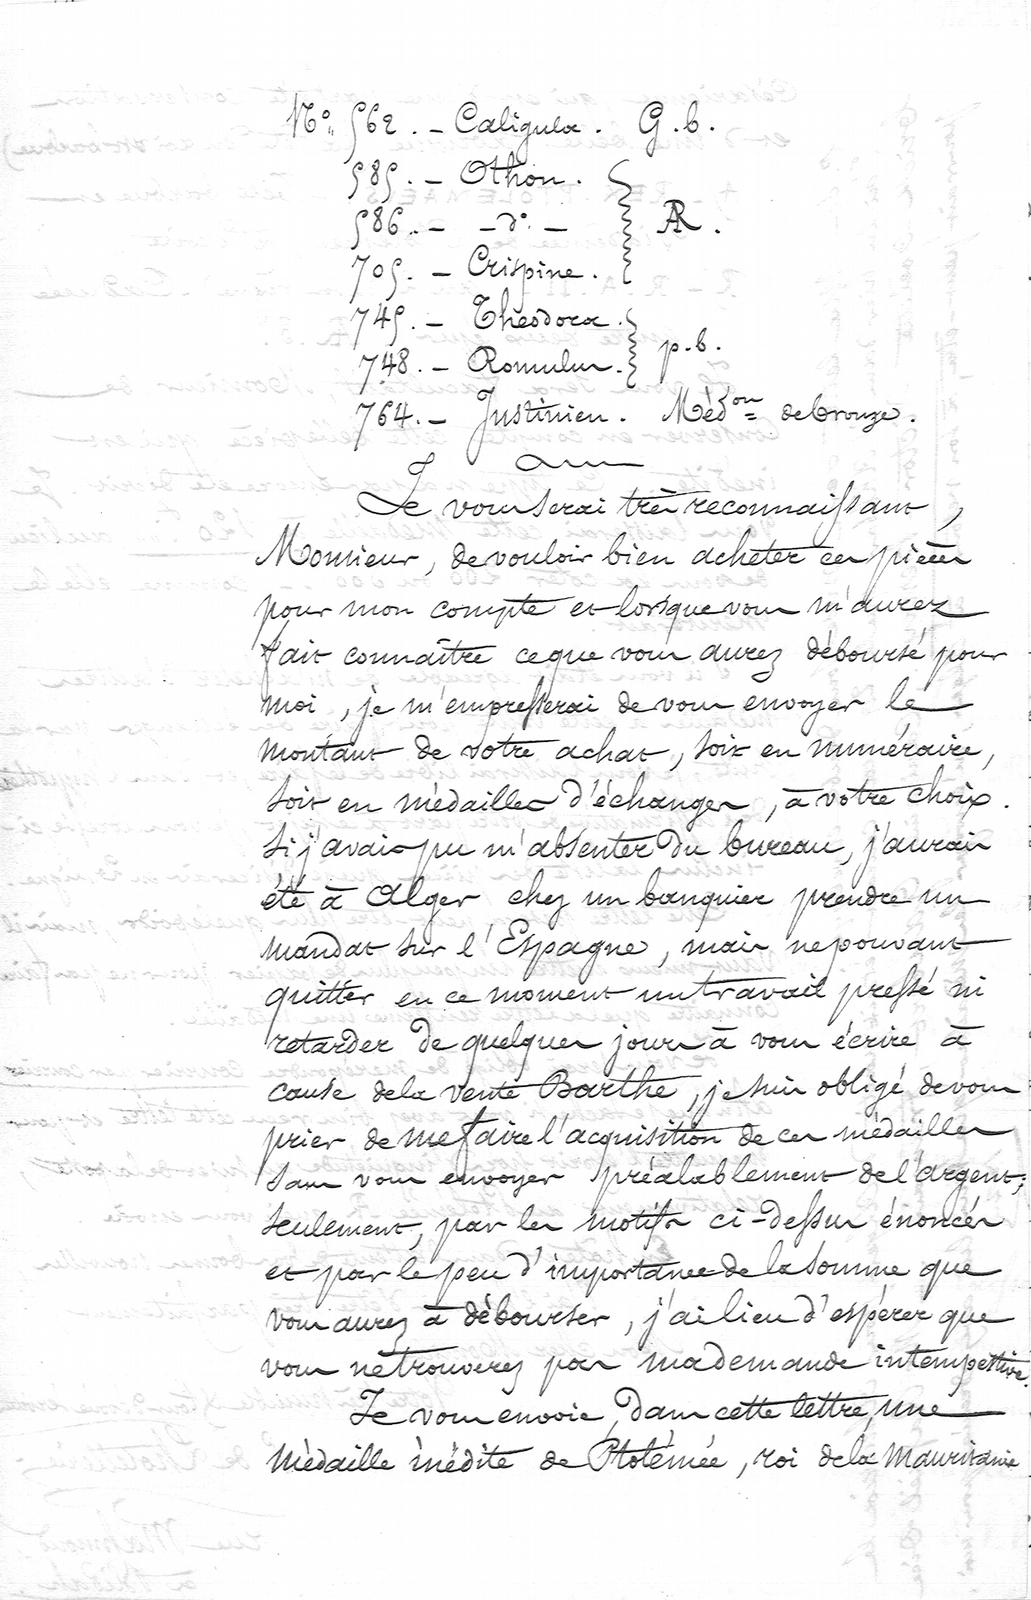 N° 562. - Caligula. G.b.
585. - Othon.
586. - - d° - AR.
705. - Crispine.
745. - Theodora.
748. - Romulus. p.b.
764. - Justinien. Méd^on de bronze.
Je vous serai très reconnaissant,
Monsieur, de vouloir bien acheter ces pièces
pour mon compte et lorsque vous m'aurez
fait connaître ce que vous aurez déboursé pour
moi, je m'empresserai de vous envoyer le
montant de votre achat, soit en numéraire,
soit en médailles d'échanges, à votre choix.
Si j'avais pu m'absenter du bureau, j'aurais
été à Alger chez un banquier prendre un
mandat sur l'Espagne, mais ne pouvant
quitter en ce moment un travail pressé ni
retarder de quelques jours à vous écrire à
cause de la vente Barthe, je suis obligé de vous
prier de me faire l'acquisition de ces médailles
sans vous envoyer préalablement de l'argent;
seulement, par les motifs ci-dessus énoncés
et par le peu d'importance de la somme que
vous aurez à débourser, j'ai lieu d'espérer que
vous ne trouverez pas ma demande intempestive.
Je vous envoie, dans cette lettre, une
médaille inédite de Ptolémée, roi de la Mauritanie